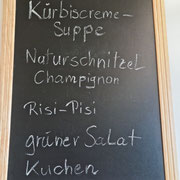 Kürbiscreme-
Suppe
Naturschnitzel
Champignon
Risi-Pisi
grüner Salat
Kuchen